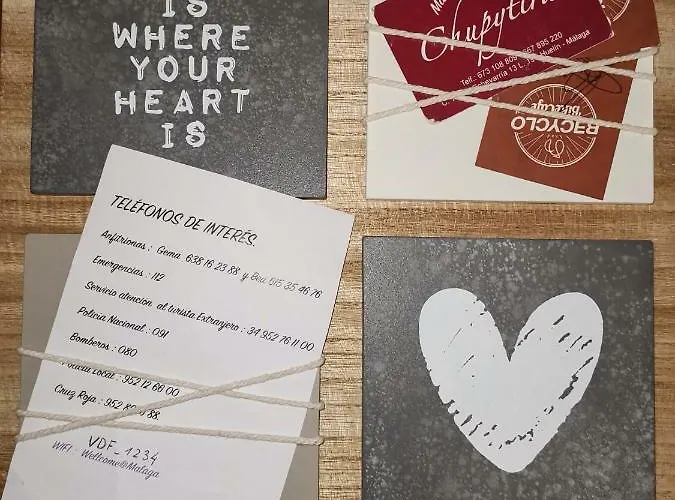 IS
WHERE
YOUR
HEART
IS
Chupytira
Telf.: 673 108 809
667 895 220
Echevarría 13 L.
Huelin - Málaga
RECYCLO
BIKE CAFE
TELÉFONOS DE INTERÉS.
Anfitrionas : Gema 638 16 23 88 y Bea 615 35 46 76
Emergencias : 112
Servicio atencion al turista Extranjero : 34 952 76 11 00
Policia Nacional : 091
Bomberos : 080
Policia Local : 952 12 66 00
Cruz Roja : 952 88
VDF_1234
WIFI : Wellcome@Malaga